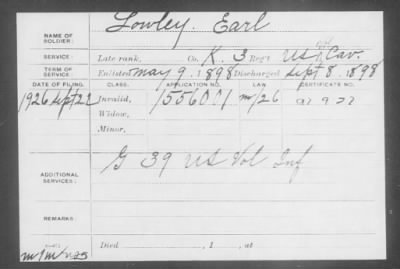 NAME OF SOLDIER: Lowley. Earl
SERVICE: Late rank, Co. K. 3 Reg't US Vol Cav.
TERM OF SERVICE: Enlisted May 9. 1898 Discharged Sept 8. 1898
DATE OF FILING. CLASS. APPLICATION NO. LAW. CERTIFICATE NO.
1926 Sept 22 Invalid, 1556001 m/26
Widow,
Minor,
ADDITIONAL SERVICES: G 39 US Vol Inf
REMARKS:
Died , 1 , at